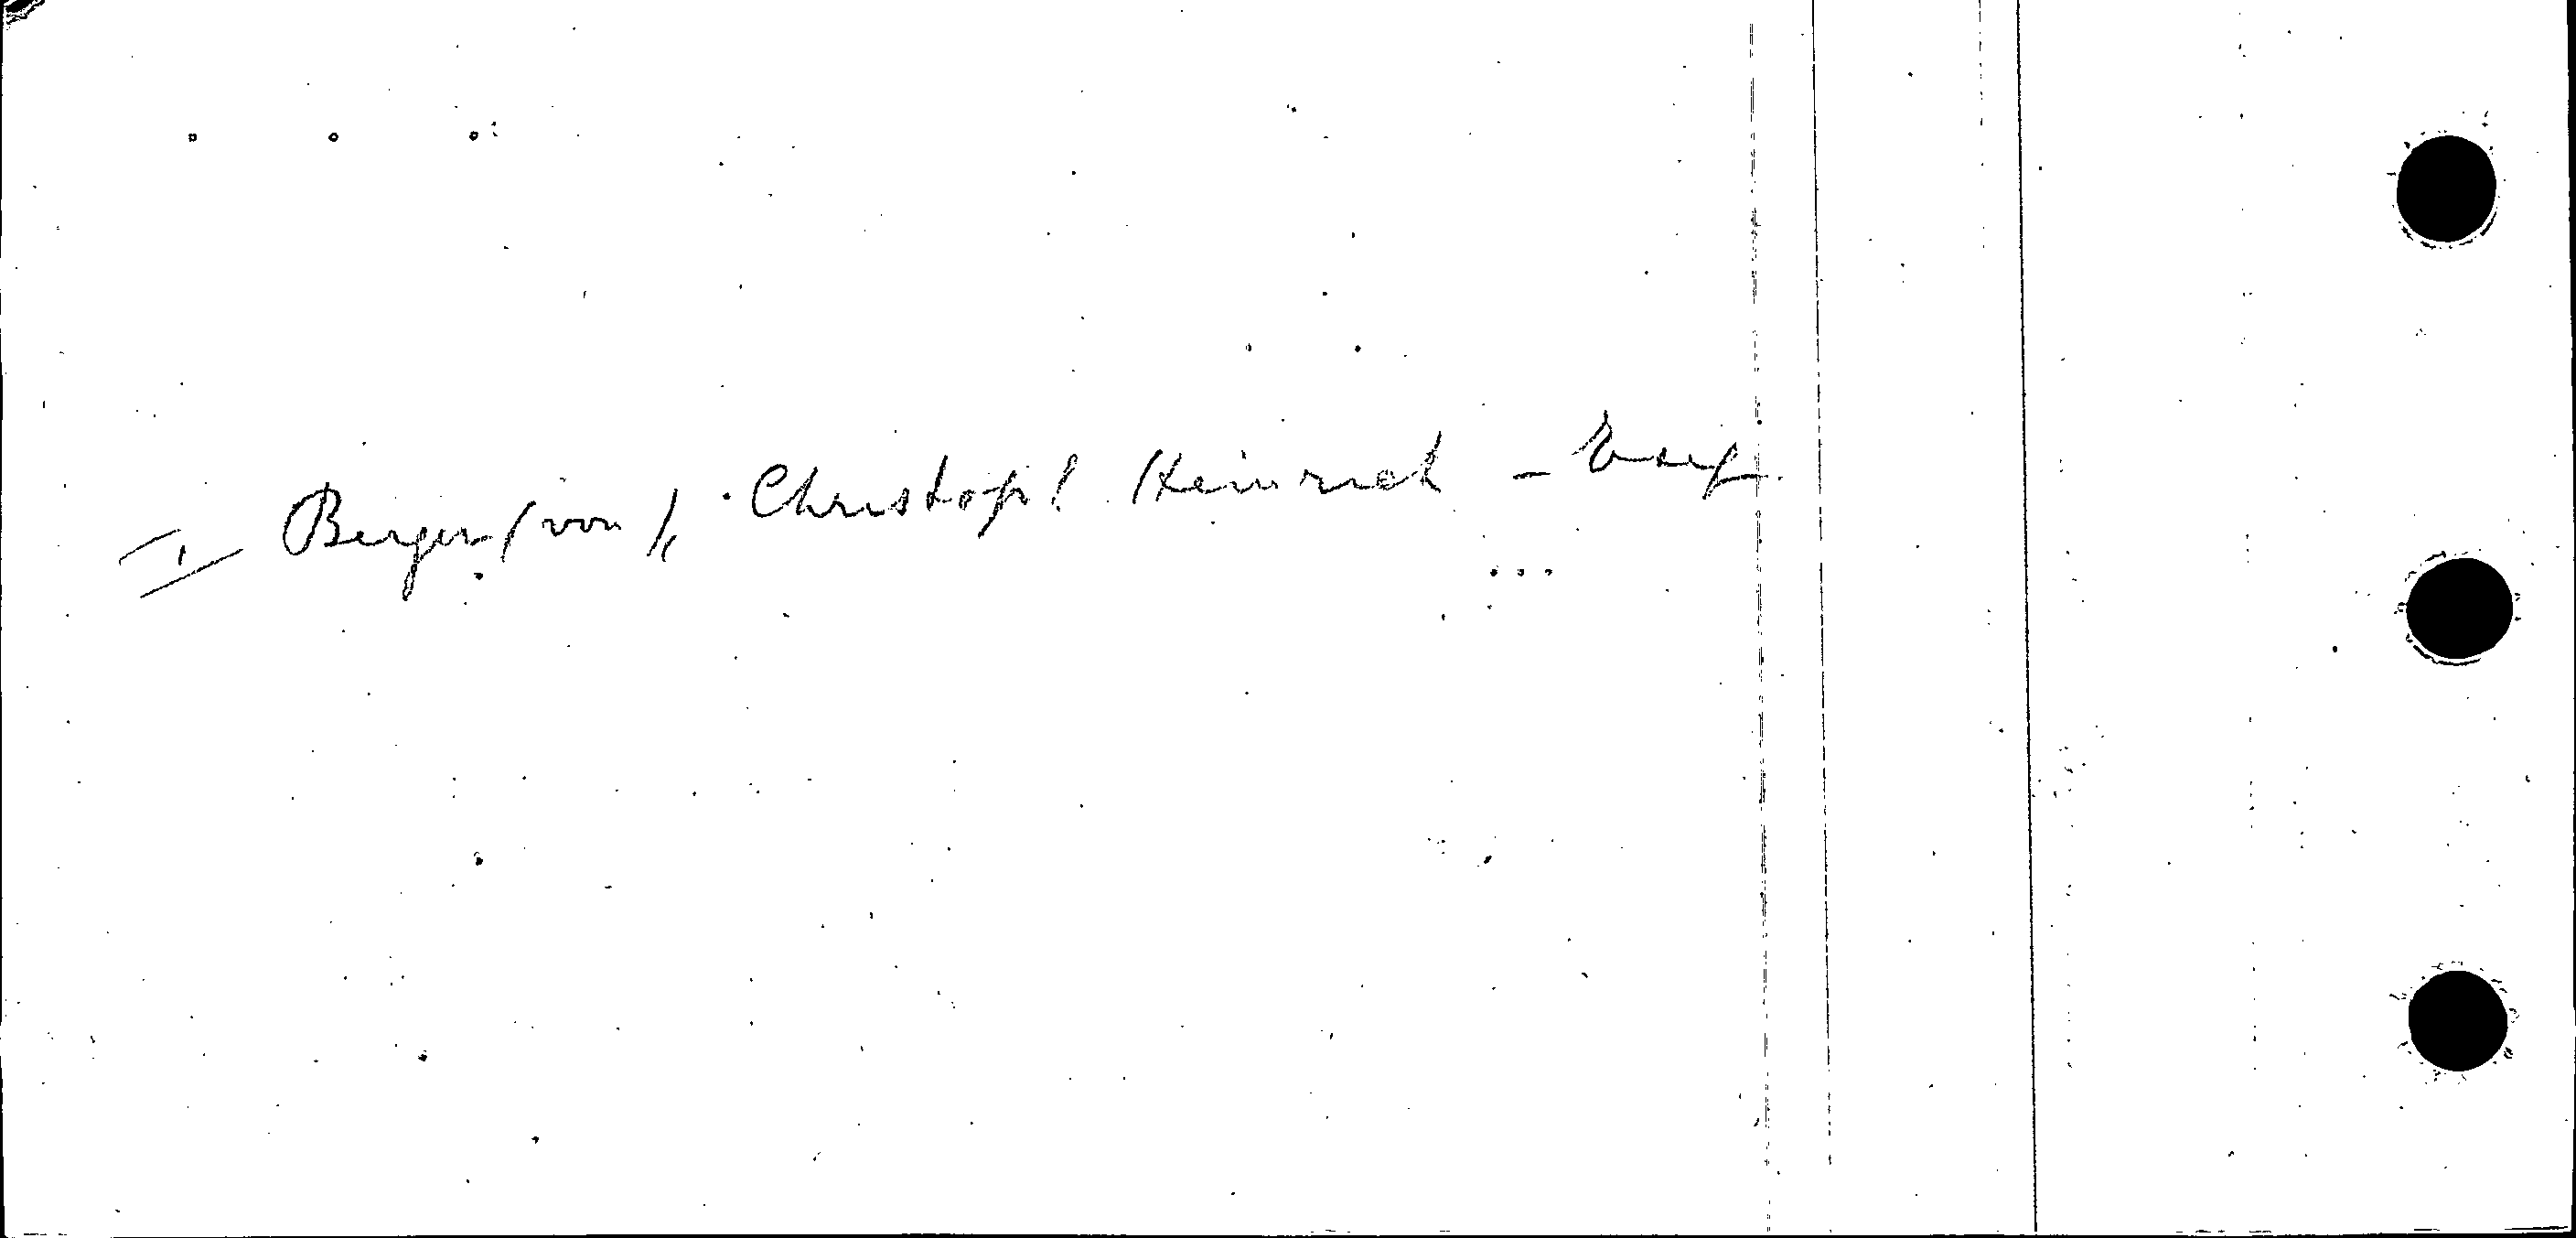 I Berger (von), Christoph Heinrich –